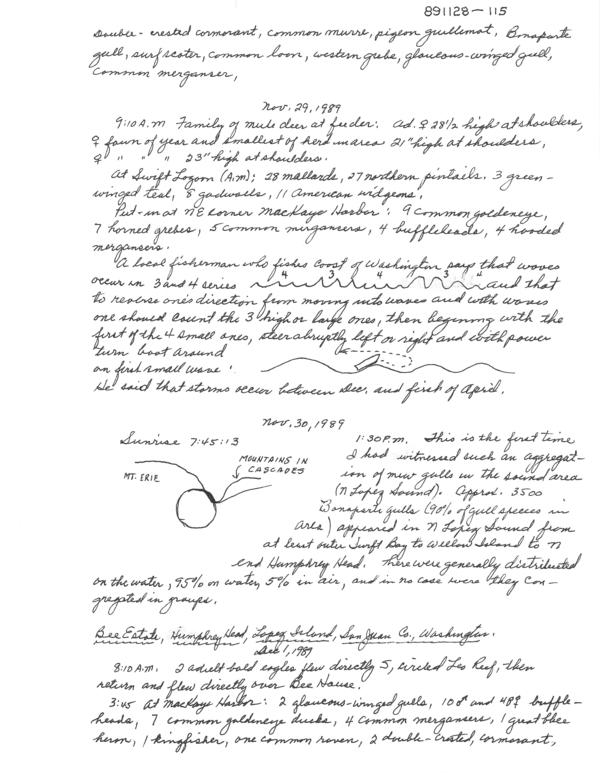 891128-115
Double-crested cormorant, common murre, pigeon guillemot, Bonaparte
gull, surf scoter, common loon, western grebe, glaucous-winged gull,
common merganser,
Nov. 29, 1989
9:10 A.M. Family of mule deer at feeder: Ad. ♀ 28½ high at shoulders,
♀ fawn of year and smallest of herd in area 21" high at shoulders,
♀ " " " 23" high at shoulders.
At Swift Lagoon (A.M); 28 mallards, 27 northern pintails. 3 green-
winged teal, 8 gadwalls, 11 American widgeons.
Put-in at NE corner MacKaye Harbor: 9 common goldeneye,
7 horned grebes, 5 common mergansers, 4 buffleheads, 4 hooded
mergansers.
A local fisherman who fishes coast of Washington says that waves
occur in 3 and 4 series 4 3 4 3 4 and that
to reverse one's direction from moving into waves and with waves
one should count the 3 high or large ones, then beginning with the
first of the 4 small ones, steer abruptly left or right and with power
turn boat around
on first small wave.
He said that storms occur between Dec. and first of April.
Nov. 30, 1989
Sunrise 7:45:13
MT. ERIE
MOUNTAINS IN
CASCADES
1:30 P.M. This is the first time
I had witnessed such an aggregat-
ion of mew gulls in the sound area
(N Lopez Sound). Approx. 3500
Bonaparte gulls (90% of gull species in
area) appeared in N Lopez Sound from
at least outer Swift Bay to Willow Island to N
end Humphrey Head. There were generally distributed
on the water, 95% on water, 5% in air, and in no case were they con-
gregated in groups.
Bee Estate, Humphrey Head, Lopez Island, San Juan Co., Washington.
Dec 1, 1989
8:10 A.M. 2 adult bald eagles flew directly S, circled Les Reef, then
return and flew directly over Bee House.
3:45 At MacKaye Harbor: 2 glaucous-winged gulls, 10♂ and 48♀ buffle-
heads, 7 common goldeneye ducks, 4 common mergansers, 1 great blue
heron, 1 kingfisher, one common raven, 2 double-crested, cormorant,